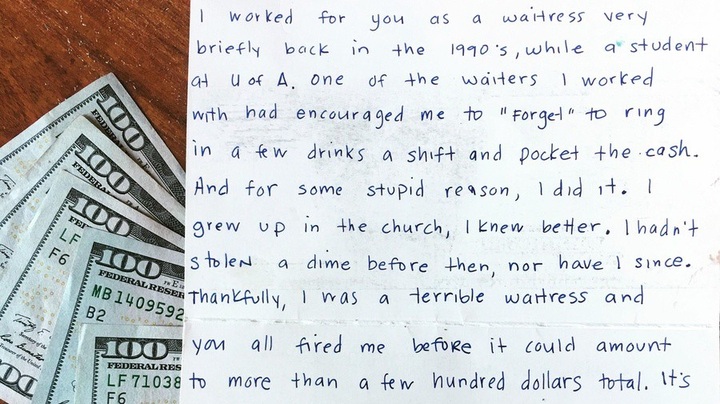 I worked for you as a waitress very
briefly back in the 1990's, while a student
at U of A. One of the waiters I worked
with had encouraged me to "Forget" to ring
in a few drinks a shift and pocket the cash.
And for some stupid reason, I did it. I
grew up in the church, I knew better. I hadn't
stolen a dime before then, nor have I since.
Thankfully, I was a terrible waitress and
you all fired me before it could amount
to more than a few hundred dollars total. It's
100
FEDERA
100
FEDERA
100
LF
F6
100
FEDERAL RESER
MB1409592
B2
100
FEDERAL RES
LF71038
F6